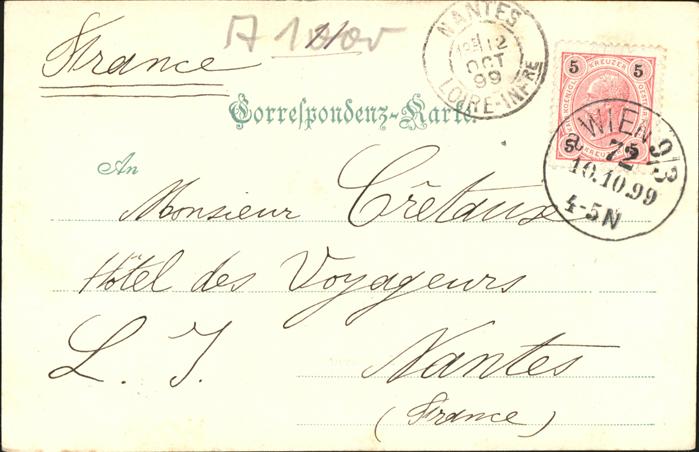 France
NANTES
12
OCT
99
LOIRE-INFRE
5 KREUZER 5
WIEN 9/3
72
10.10.99
4-5N
Correspondenz-Karte.
An
Monsieur Crétaux
Hôtel des Voyageurs
L. I. Nantes
(France)